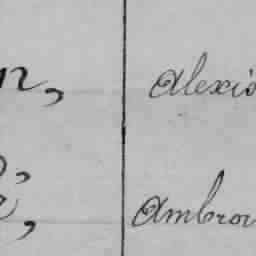 n, Alexis
Ambroi